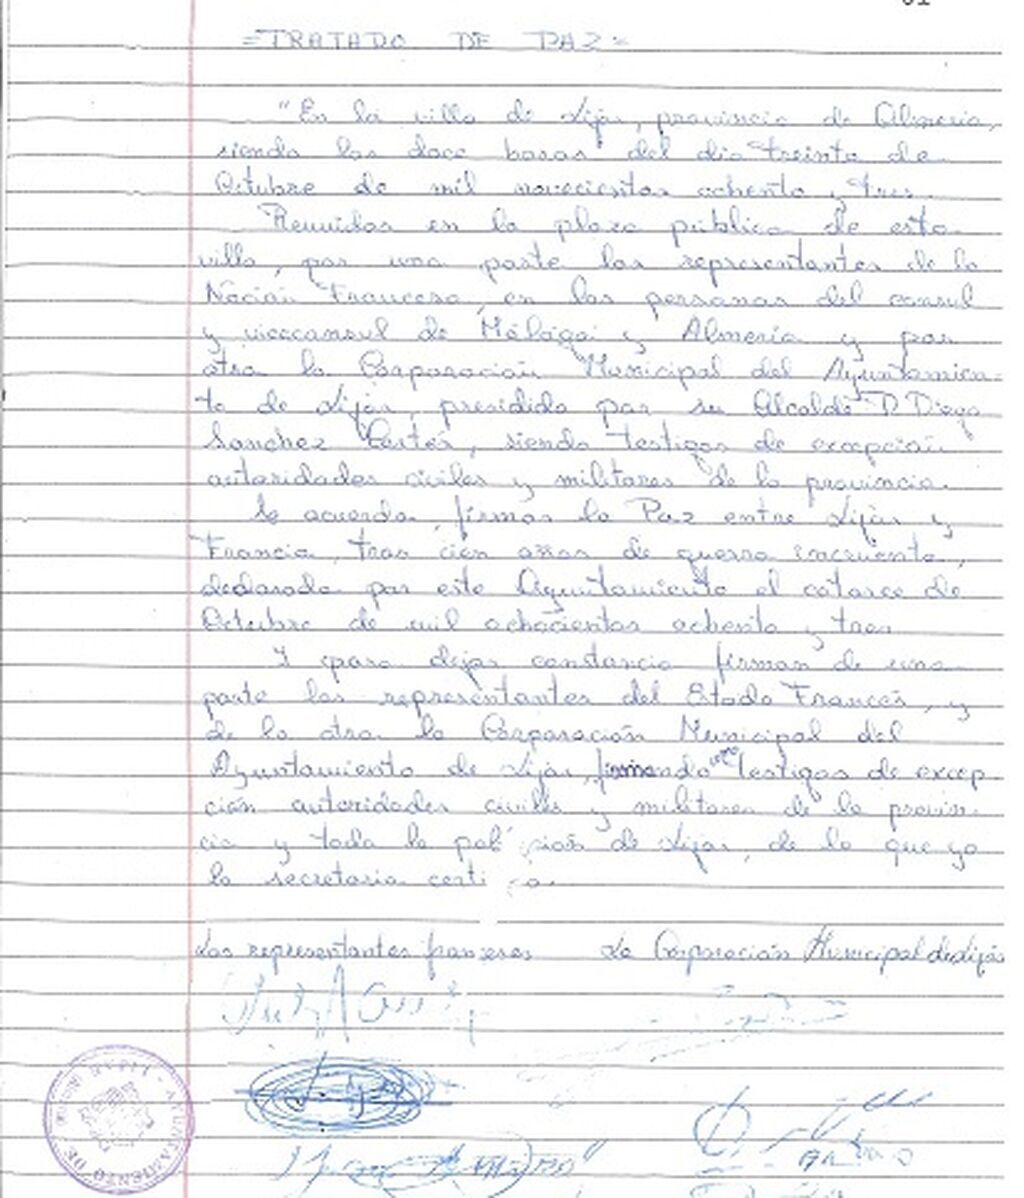 =TRATADO DE PAZ=
"En la villa de Lijar, provincia de Almeria,
siendo las doce horas del dia treinta de
Octubre de mil novecientos ochenta y tres.
Reunidos en la plaza pública de esta
villa, por una parte los representantes de la
Nación Francesa, en las personas del consul
y viceconsul de Málaga y Almería y por
otra la Corporación Municipal del Ayuntamien-
to de Lijar, presidida por su Alcalde D. Diego
Sanchez Cortés, siendo testigos de excepción
autoridades civiles y militares de la provincia.
Se acuerda firmar la Paz entre Lijar y
Francia, tras cien años de guerra incruenta,
declarada por este Ayuntamiento el catorce de
Octubre de mil ochocientos ochenta y tres
Y para dejar constancia firman de una
parte los representantes del Estado Francés, y
de la otra la Corporación Municipal del
Ayuntamiento de Lijar, firmando como testigos de excep-
ción autoridades civiles y militares de la provin-
cia y toda la población de Lijar, de lo que yo
la secretaria certifico.
Los representantes franceses La Corporación Municipal de Lijar
AYUNTAMIENTO DE LIJAR